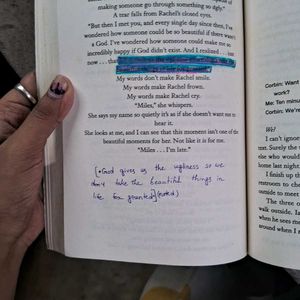 making someone go through something so ugly."
A tear falls from Rachel's closed eyes.
"But then I met you, and every single day since then, I've
wondered how someone could be so beautiful if there wasn't
a God. I've wondered how someone could make me so
incredibly happy if God didn't exist. And I realized . . . just
now . . . that
My words don't make Rachel smile.
My words make Rachel frown.
My words make Rachel cry.
"Miles," she whispers.
She says my name so quietly it's as if she doesn't want me to
hear it.
She looks at me, and I can see that this moment isn't one of the
beautiful moments for her. Not like it is for me.
"Miles . . . I'm late."
[•God gives us the ugliness so we
don't take the beautiful things in
life for granted]
Corbin: Want
work?
Me: Ten minu
Corbin: We're
I can't ignore
text. Surely the
else who would
home last night.
I finish up th
restroom to ch
outside to meet
The three o
walk outside. I
when he
are